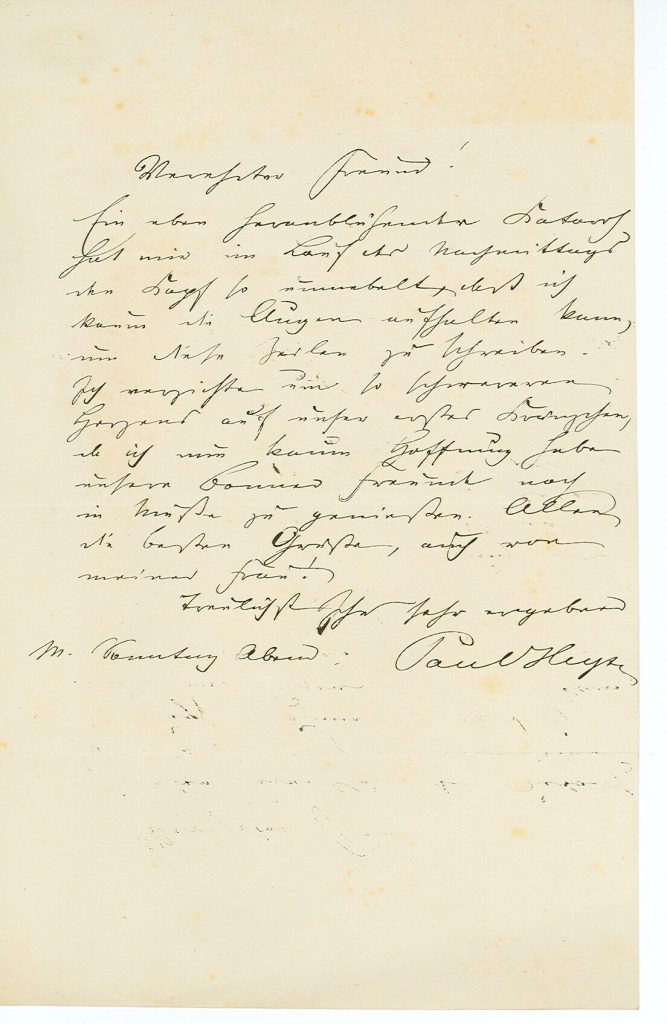 Verehrter Freund!
Ein eben heranblühender Katarrh
hat mir im Lauf des Nachmittags
den Kopf so umnebelt, daß ich
kaum die Augen aufhalten kann,
um diese Zeilen zu schreiben.
Ich verzichte um so schwereren
Herzens auf unser erstes Kränzchen,
da ich nun kaum Hoffnung habe
unsere Bonner Freunde noch
in Muße zu genießen. Allen
die besten Grüße, auch von
meiner Frau!
Treulichst Ihr sehr ergebener
M. Sonntag Abend. Paul Heyse